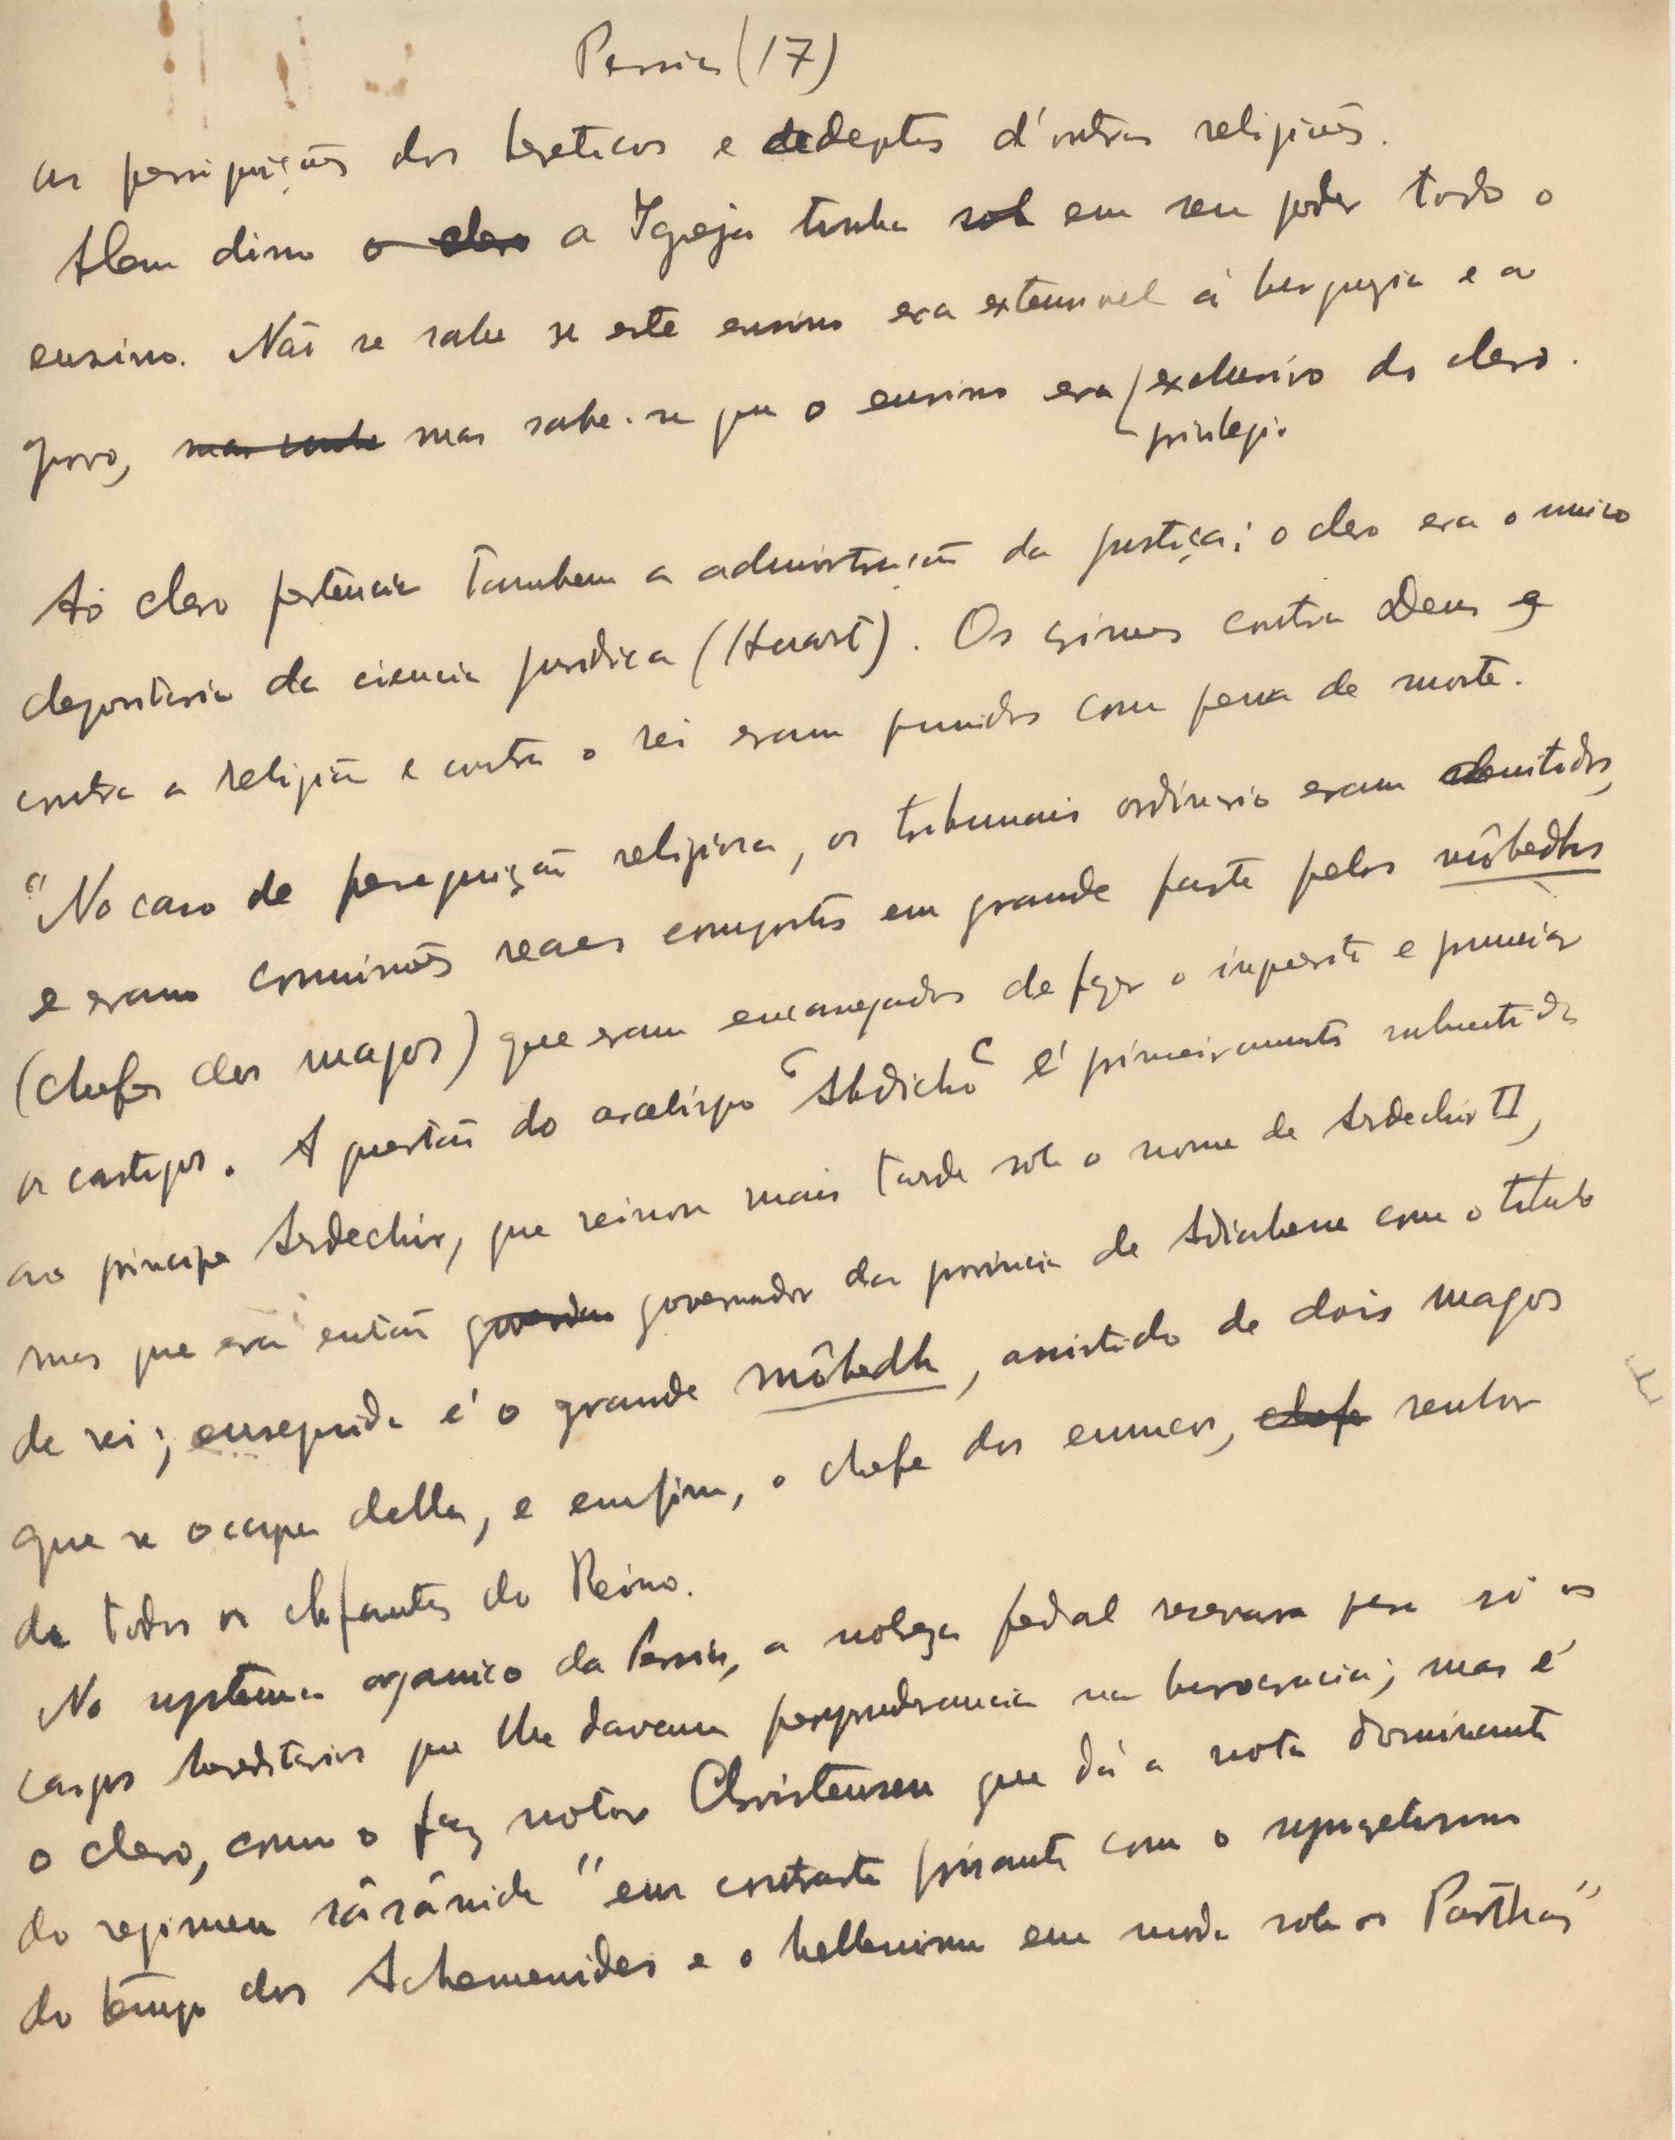 Persia (17)
as persiguições dos hereticos e adeptos d'outras religiões.
Alem disso o clero a Igreja tinha sob em seu poder todo o
ensino. Não se sabe se este ensino era extensivel á burguezia e ao
povo, mas sabe-se que o ensino era exclusivo do clero.
privilegio
Ao clero pertencia tambem a administração da justiça; o clero era o unico
depositario da ciencia juridica (Huart). Os crimes contra Deus e
contra a religião e contra o rei eram punidos com pena de morte.
"No caso de perseguição religiosa, os tribunais ordinario eram demitidos,
e eram comissões reaes compostas em grande parte pelos môbedhs
(chefes dos magos) que eram encarregados de fazer o inquerito e pronunciar
os castigos. A questão do arcebispo "Abdichô" é primeiramente submetida
ao principe Ardechir, que reinou mais tarde sob o nome de Ardechir II,
mas que era então governador da provincia de Adiabene com o titulo
de rei; enseguida é o grande môbedh, assistido de dois magos
que se occupa della, e emfim, o chefe dos eunucos, chefe senhor
de todos os elefantes do Reino.
No systema organico da Persia, a nobreza fedal reservava para si os
cargos hereditarios que lhe davam perponderancia na burocracia; mas é
o clero, como o faz notar Christensen que dá a nota dominante
do regimen sâsânide "em contraste frisante com o syngretismo
do tempo dos Achemenides e o hellenismo em moda sob os Parthas"